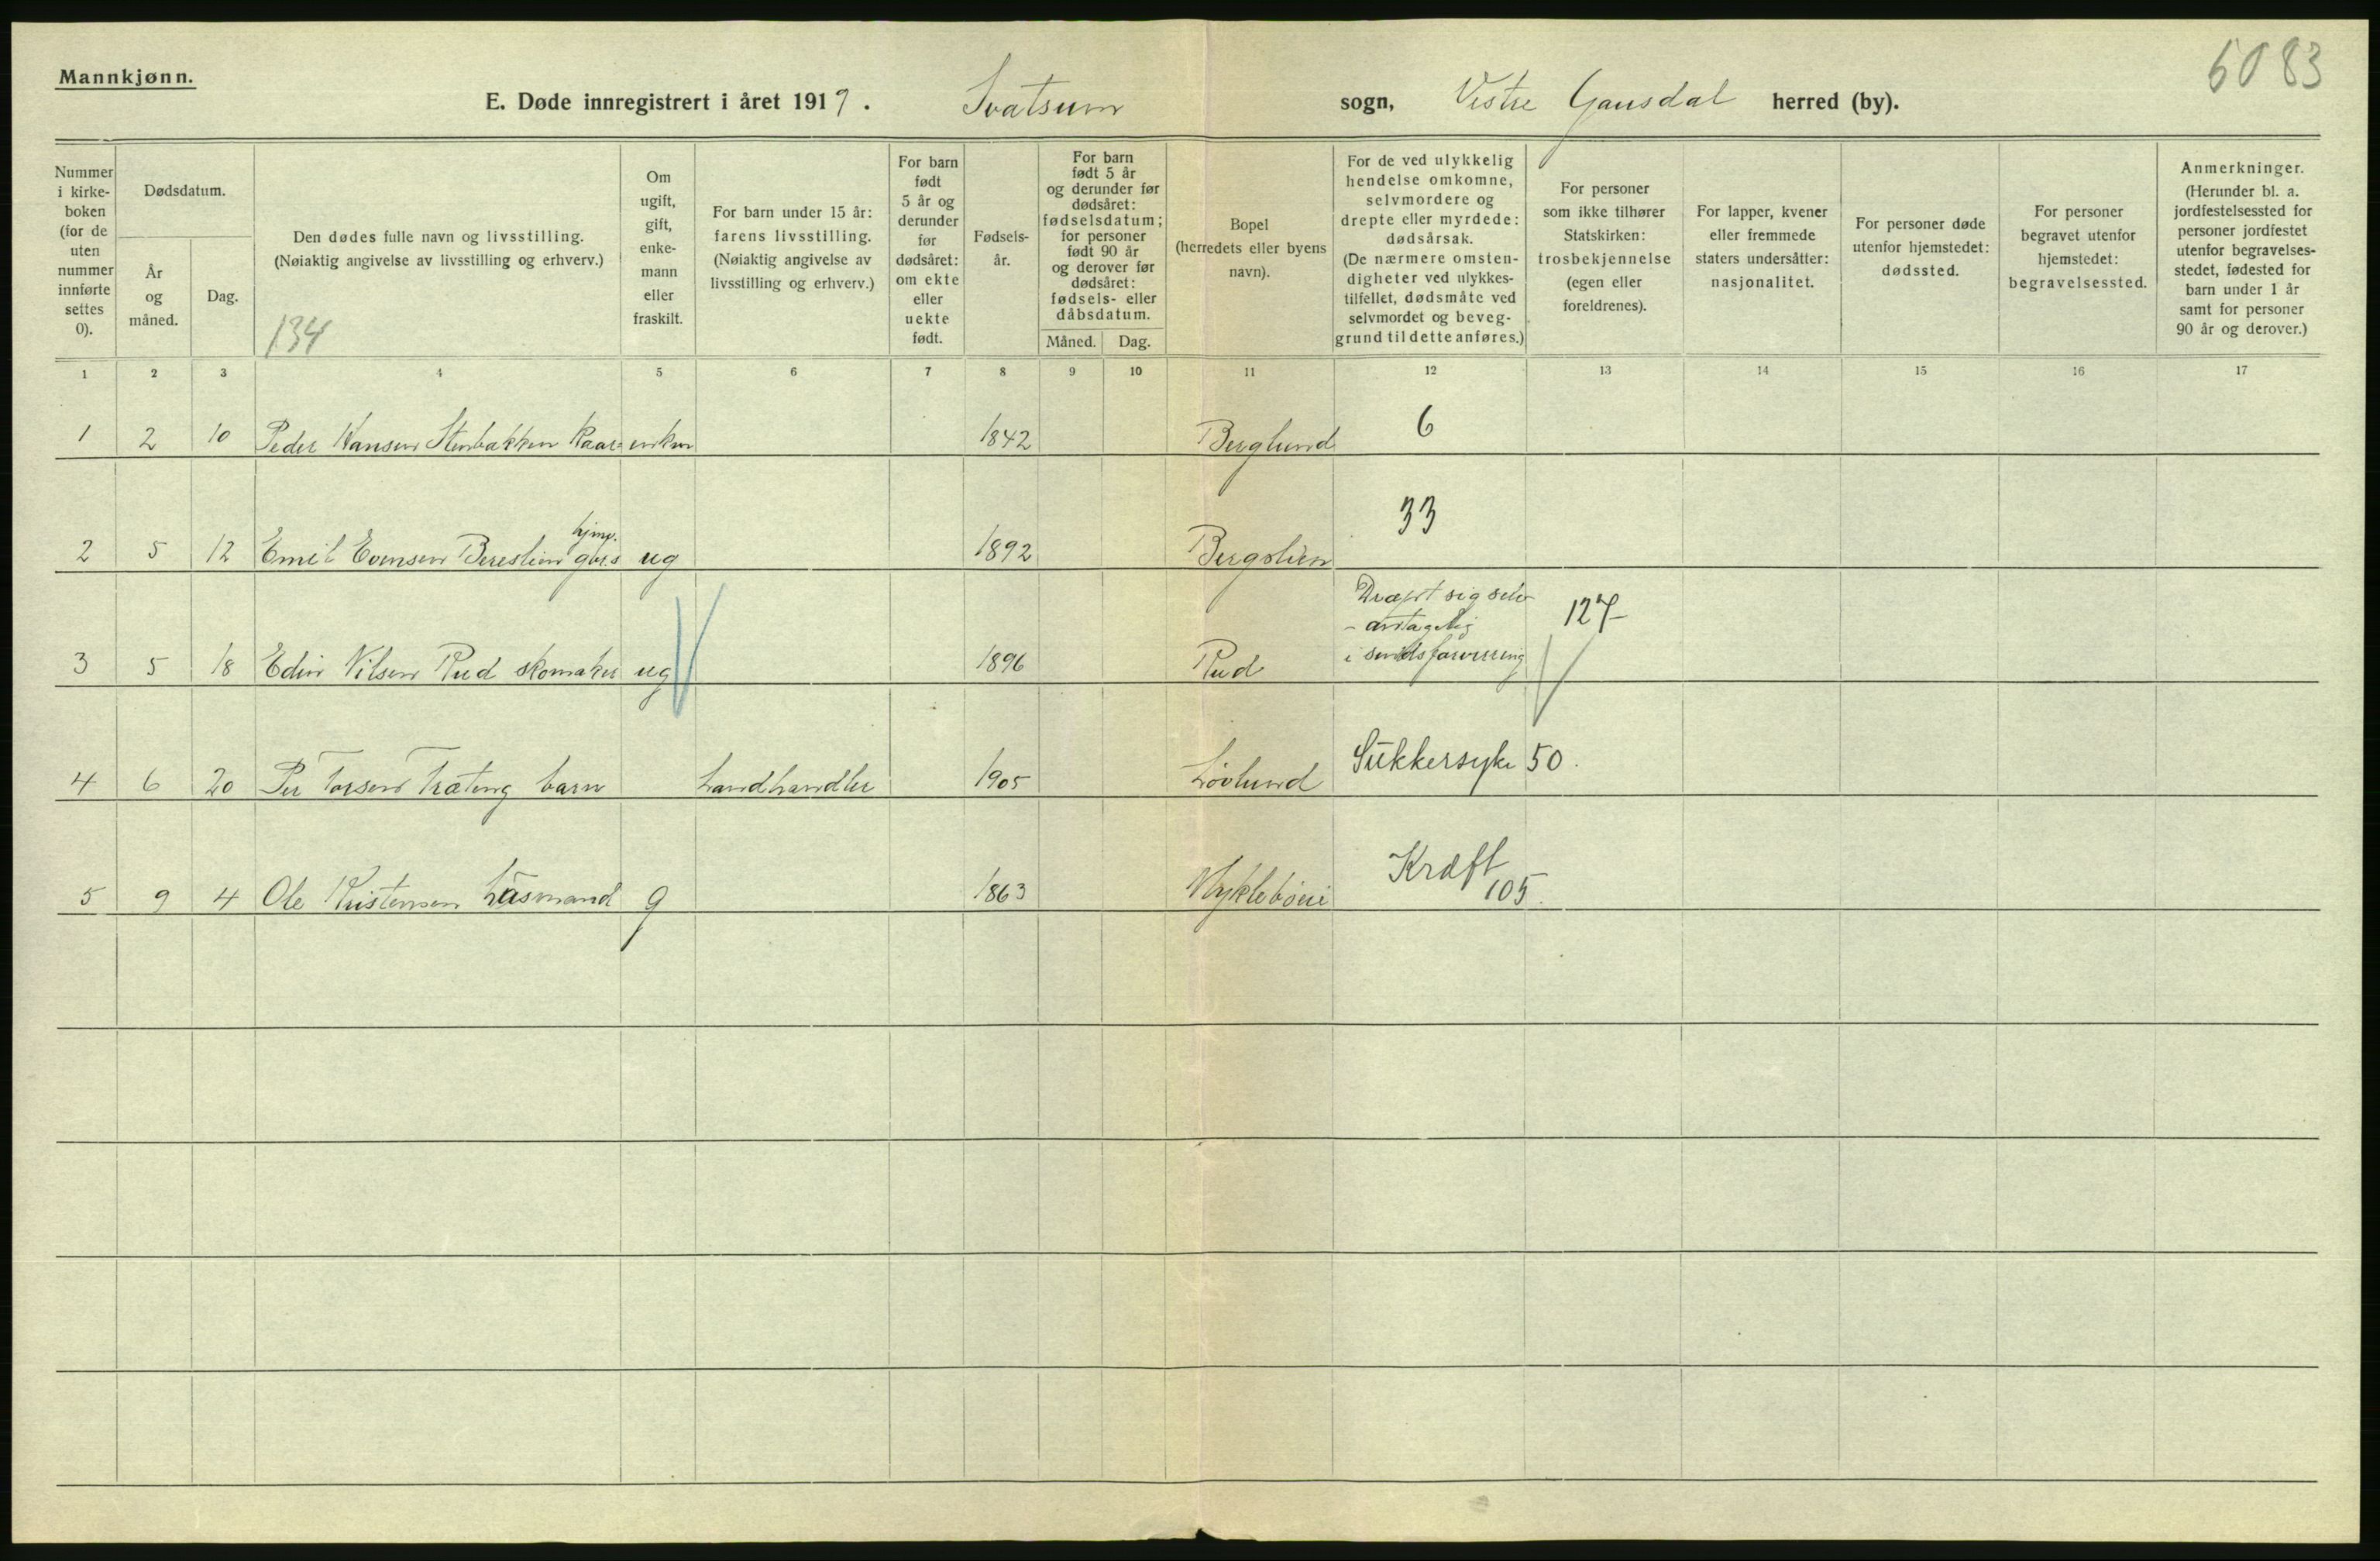 6083
Mannkjønn.
E. Døde innregistrert i året 1919. Svatsum sogn, Vestre Gausdal herred (by).
Nummer i kirke- boken (for de uten nummer innførte settes 0).
Dødsdatum.
År og måned.
Dag.
Den dødes fulle navn og livsstilling.
(Nøiaktig angivelse av livsstilling og erhverv.)
134
Om ugift, gift, enke- mann eller fraskilt.
For barn under 15 år: farens livsstilling. (Nøiaktig angivelse av livsstilling og erhverv.)
For barn født 5 år og derunder før dødsåret: om ekte eller uekte født.
Fødsels- år.
For barn født 5 år og derunder før dødsåret: fødselsdatum; for personer født 90 år og derover før dødsåret: fødsels- eller dåbsdatum.
Måned. Dag.
Bopel (herredets eller byens navn).
For de ved ulykkelig hendelse omkomne, selvmordere og drepte eller myrdede: dødsårsak. (De nærmere omsten- digheter ved ulykkes- tilfellet, dødsmåte ved selvmordet og beveg- grund til dette anføres.)
For personer som ikke tilhører Statskirken: trosbekjennelse (egen eller foreldrenes).
For lapper, kvener eller fremmede staters undersåtter: nasjonalitet.
For personer døde utenfor hjemstedet: dødssted.
For personer begravet utenfor hjemstedet: begravelsessted.
Anmerkninger. (Herunder bl. a. jordfestelsessted for personer jordfestet utenfor begravelses- stedet, fødested for barn under 1 år samt for personer 90 år og derover.)
1 2 3 4 5 6 7 8 9 10 11 12 13 14 15 16 17
1 2 10 Peder Hansen Stenbakken 1842 Berglund 6
2 5 12 Emil Evensen ug 1892 Bergslien 33
3 5 18 Edin Nilsen Rud skomaker ug 1896 Rud Dræpt sig selv
- antagelig
i sindsforvirring 127
4 6 20 Per Torsen Træteng barn Landhandler 1905 Lövlund Sukkersyke 50.
5 9 4 Ole Kristensen Låsmand g 1863 Kræft 105.